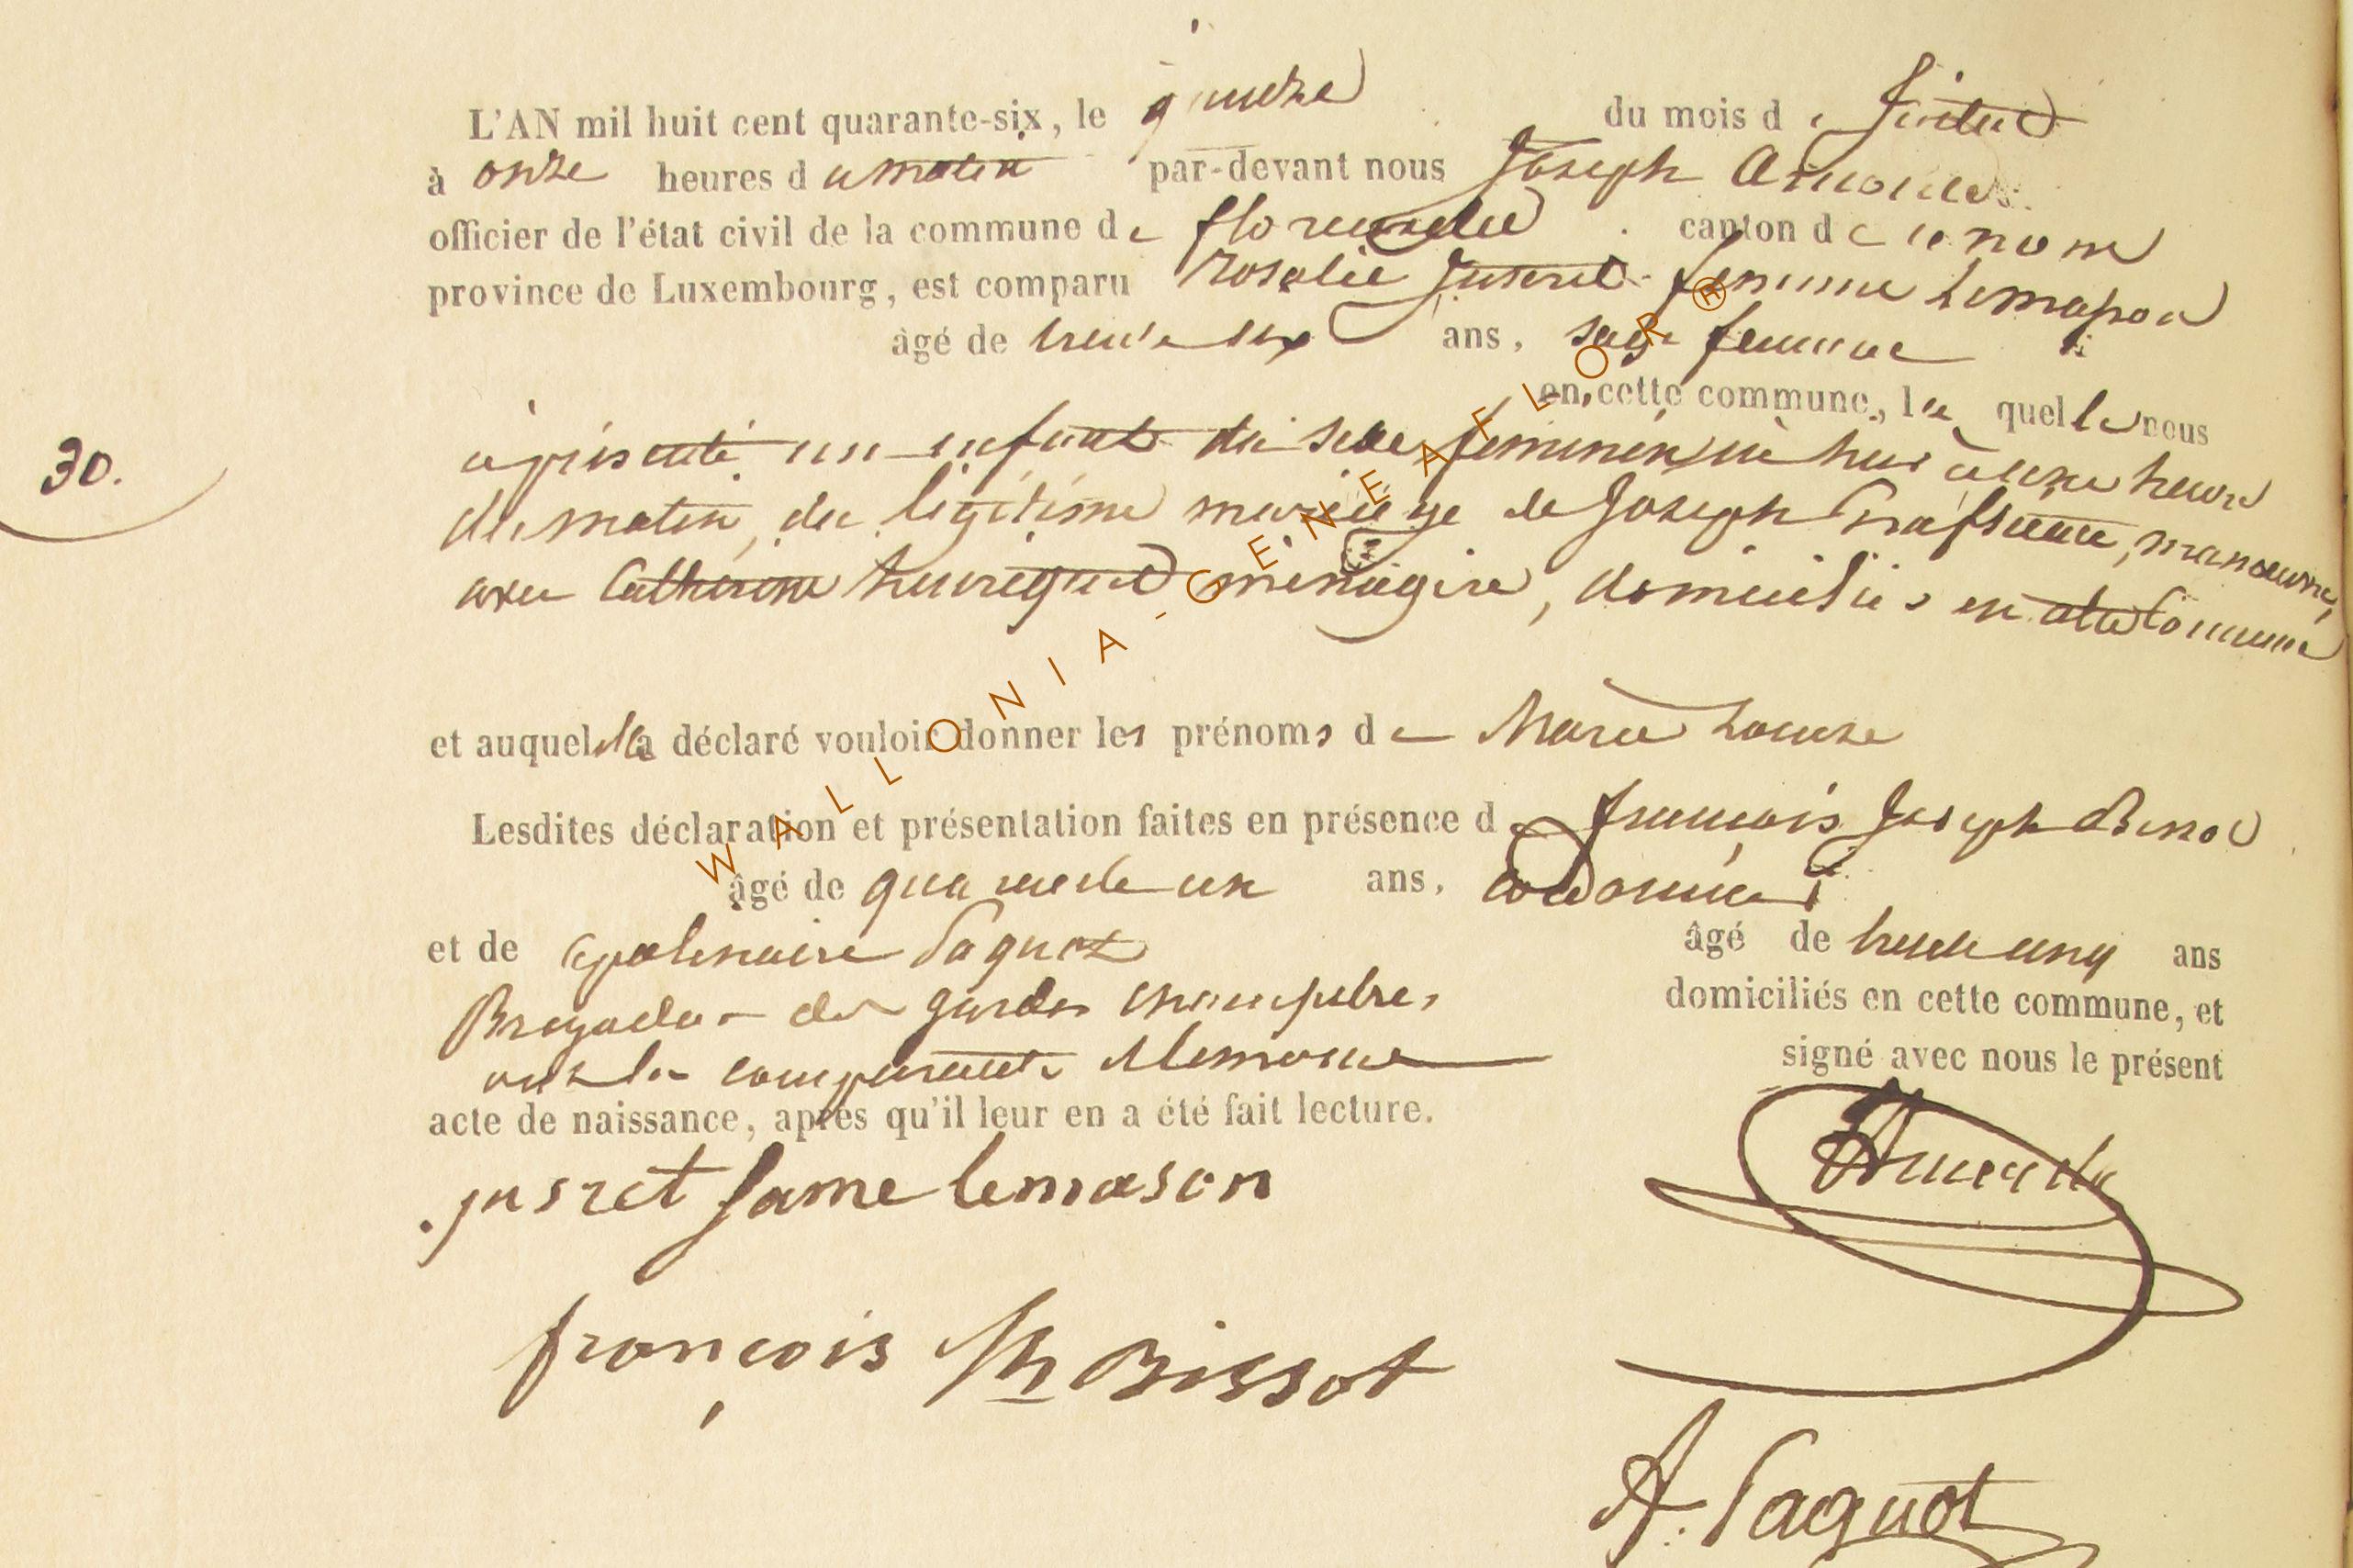 L'AN mil huit cent quarante-six, le quinze du mois de Juillet
à onze heures du matin par-devant nous Joseph
officier de l'état civil de la commune de florenville canton de
province de Luxembourg, est comparu rosalie Jusret femme Lemason
âgé de trente six ans, sage femme
en cette commune, laquelle nous
30.
a présenté un enfant du sexe feminin né hier à onze heures
du matin, du légitime mariage de Joseph manoeuvre,
avec Catherine henriquet ménagère, domiciliés en cette Commune
et auquel elle a déclaré vouloir donner les prénoms de Marie Louise
Lesdites déclaration et présentation faites en présence de françois Joseph Bissot
âgé de quarante un ans, cordonnier
et de apolinaire Paquot âgé de trente cinq ans
Brigadier des gardes champetres domiciliés en cette commune, et
ont la comparante signé avec nous le présent
acte de naissance, après qu'il leur en a été fait lecture.
jusret fame lemason
françois Jh Bissot
A. Paquot
WALLONIA-GENEAFLOR®